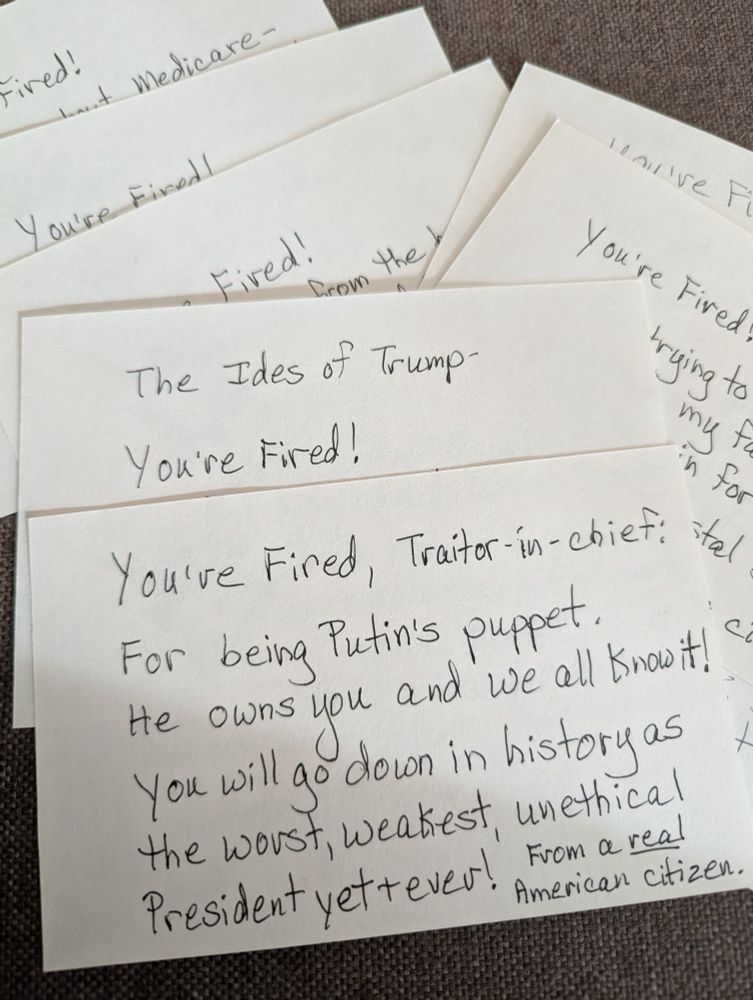 Fired!
Medicare-
You're Fired!
Fired!
From the
You're
You're Fired!
trying to
my
in for
The Ides of Trump-
You're Fired!
You're Fired, Traitor-in-chief:
For being Putin's puppet.
He owns you and we all know it!
You will go down in history as
the worst, weakest, unethical
President yet + ever!
From a real
American citizen.